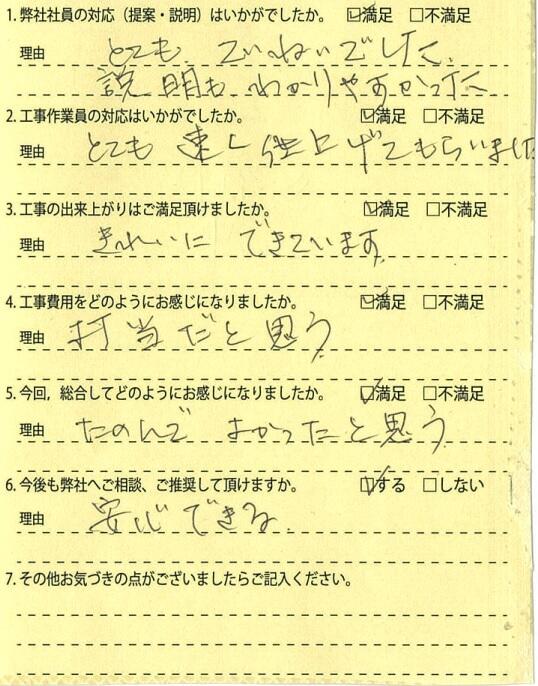 1. 弊社社員の対応（提案・説明）はいかがでしたか。 ☑満足 □不満足
理由 とても ていねいでした。
説明も わかりやすかった
2. 工事作業員の対応はいかがでしたか。 ☑満足 □不満足
理由 とても 速く 仕上げてもらいました
3. 工事の出来上がりはご満足頂けましたか。 ☑満足 □不満足
理由 きれいに できています。
4. 工事費用をどのようにお感じになりましたか。 ☑満足 □不満足
理由 打当だと思う
5. 今回，総合してどのようにお感じになりましたか。 ☑満足 □不満足
理由 たのんで よかったと思う
6. 今後も弊社へご相談、ご推奨して頂けますか。 ☑する □しない
理由 安心できる。
7. その他お気づきの点がございましたらご記入ください。